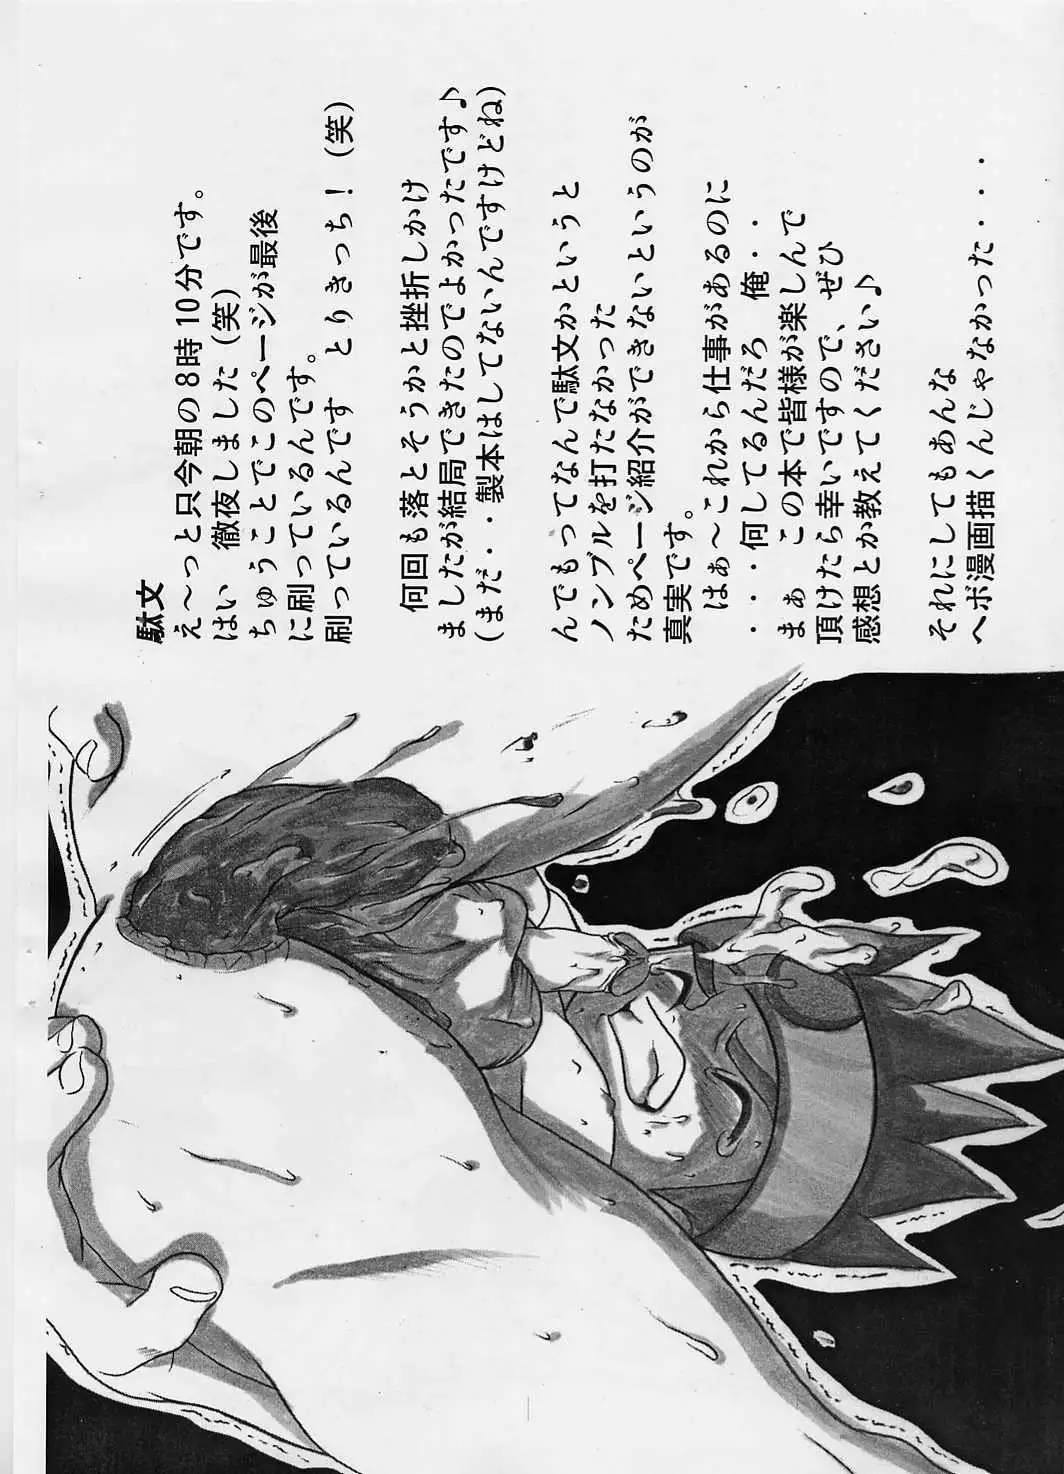 駄文
え～っと只今朝の8時10分です。
はい　徹夜しました(笑)
ちゅうことでこのページが最後
に刷っているんです。
刷っているんです　とりきっち！(笑)
何回も落とそうかと挫折しかけ
ましたが結局できたのでよかったです♪
(まだ・・製本はしてないんですけどね)
んでもってなんで駄文かというと
ノンブルを打たなかった
ためページ紹介ができないというのが
真実です。
はぁ～これから仕事があるのに
・・・・何してるんだろ　俺・・
まぁ　この本で皆様が楽しんで
頂けたら幸いですので、ぜひ
感想とか教えてください♪
それにしてもあんな
ヘボ漫画描くんじゃなかった・・・・